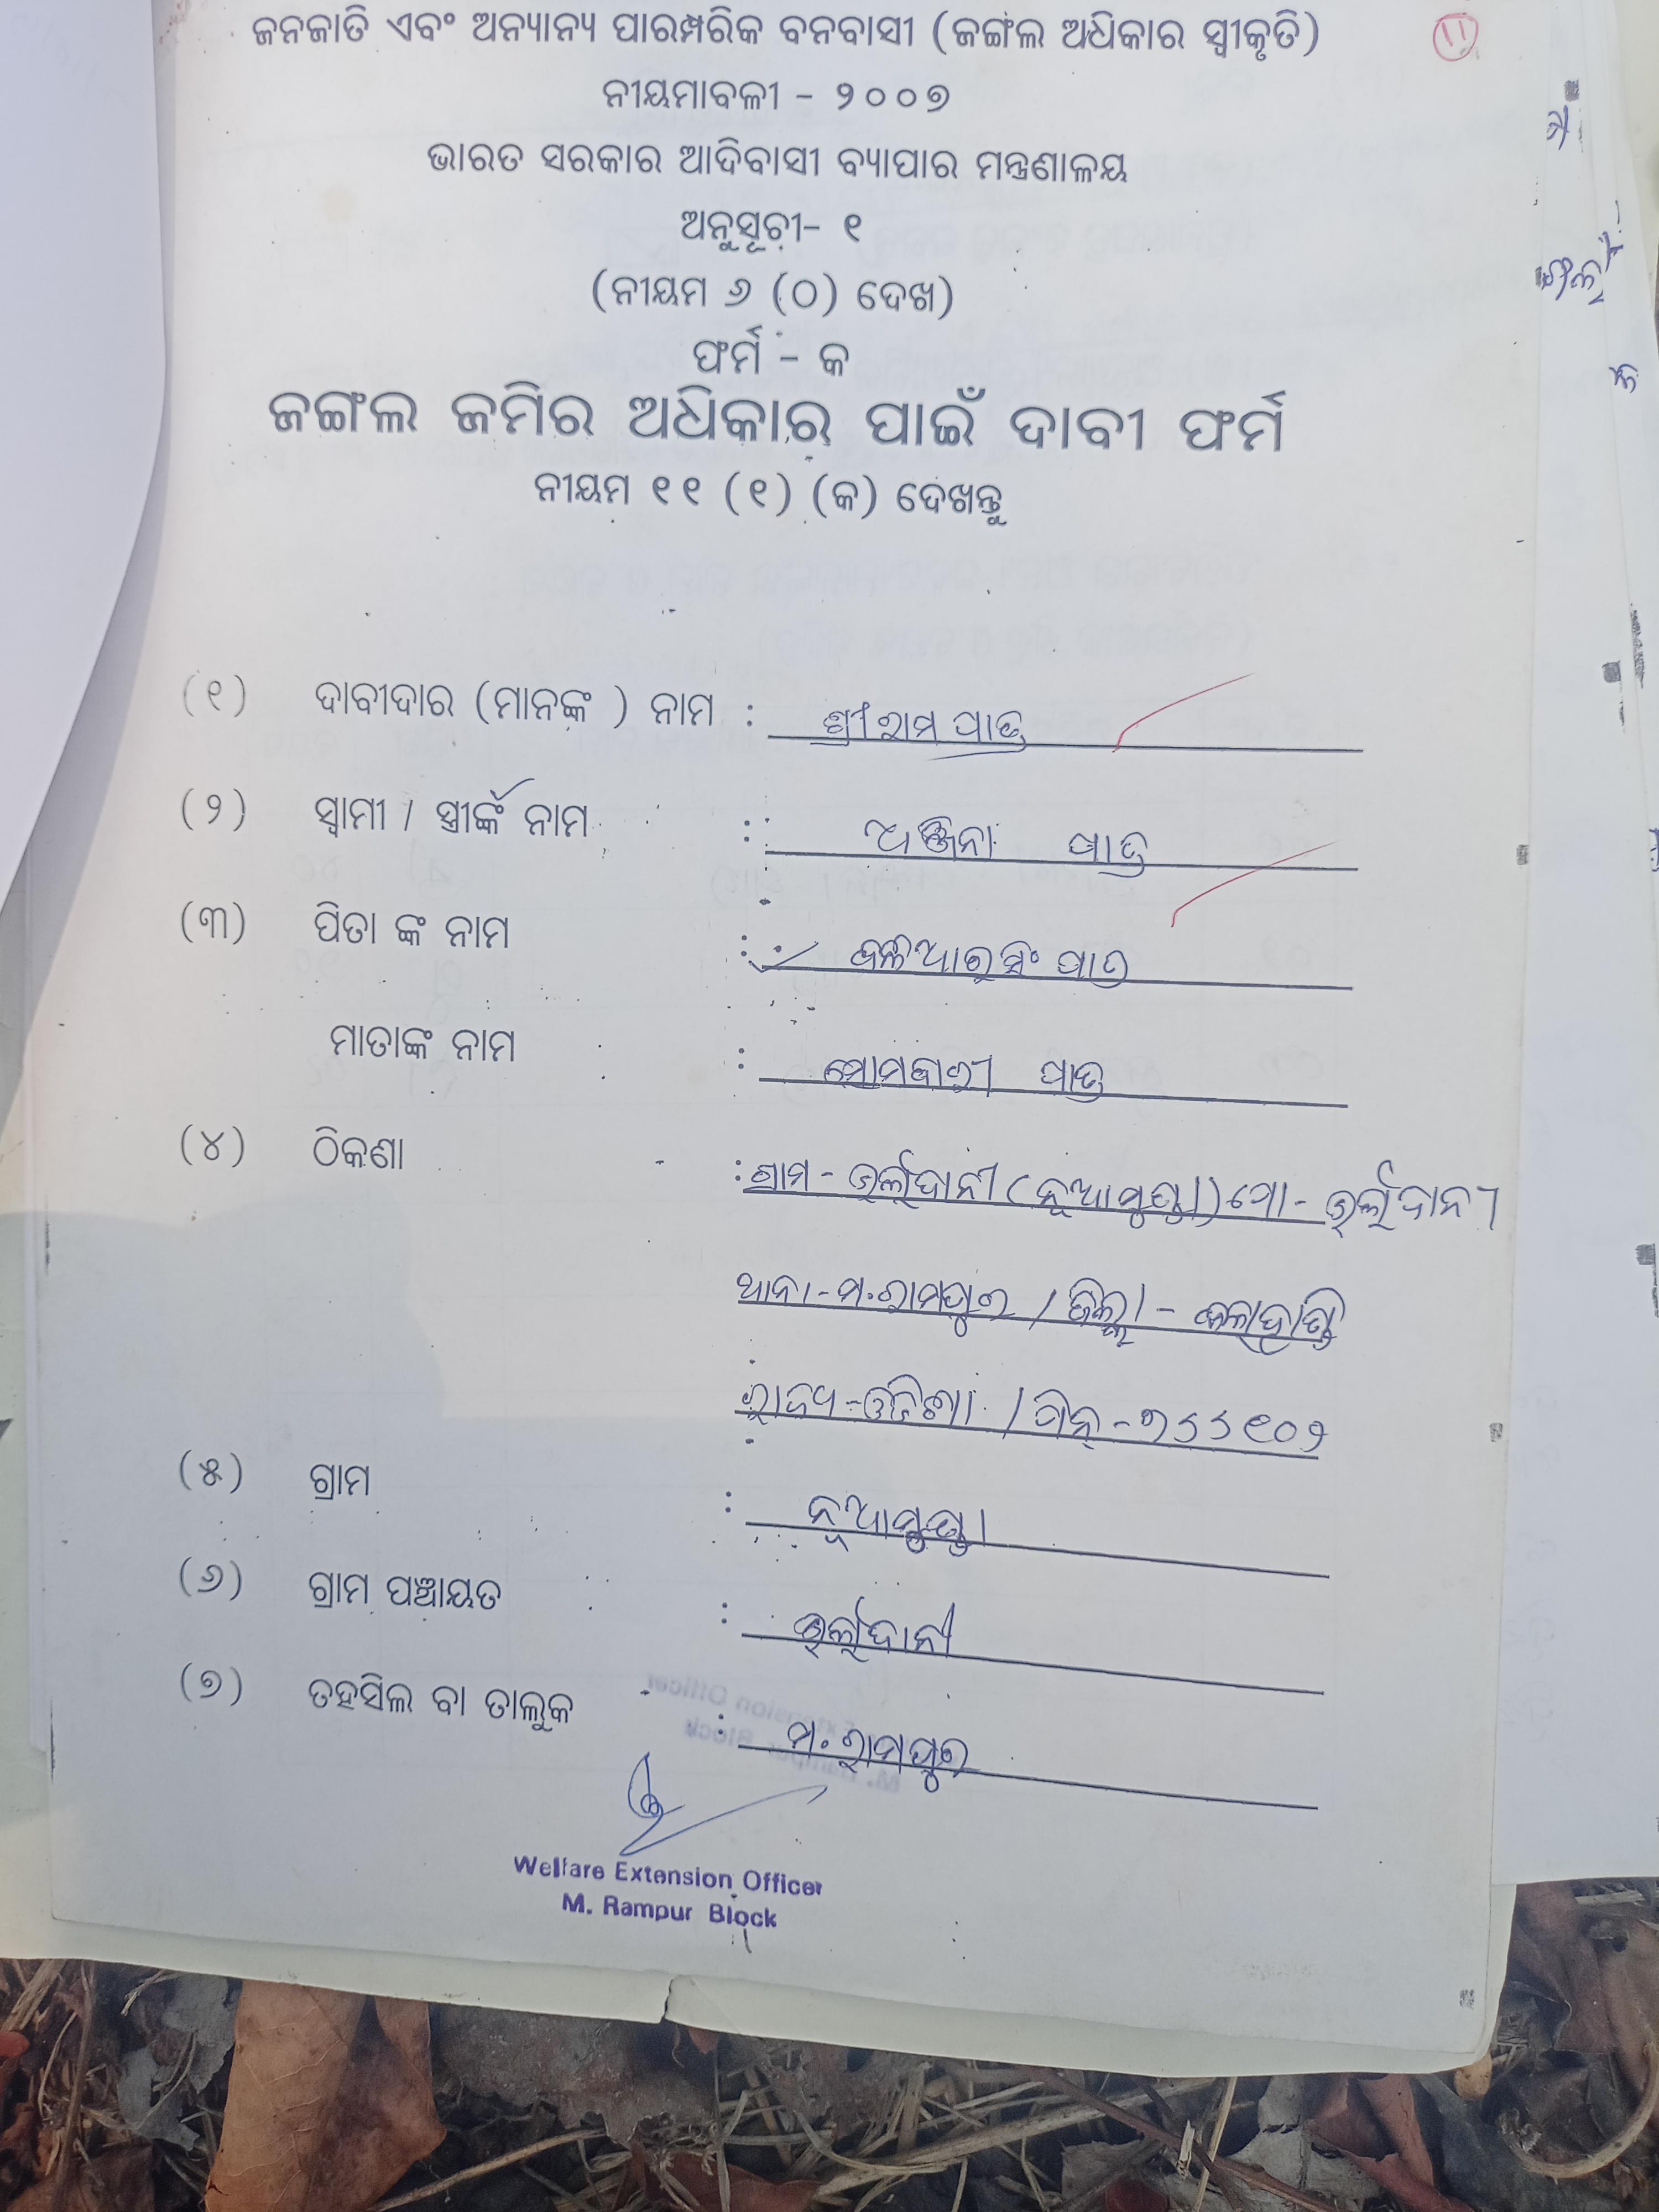 ଜନଜାତି ଏବଂ ଅନ୍ୟାନ୍ୟ ପାରମ୍ପରିକ ବନବାସୀ (ଜଙ୍ଗଲ ଅଧିକାର ସ୍ୱୀକୃତି)
ନୀୟମାବଳୀ - ୨୦୦୭
ଭାରତ ସରକାର ଆଦିବାସୀ ବ୍ୟାପାର ମନ୍ତ୍ରଣାଳୟ
ଅନୁସୂଚୀ- ୧
(ନୀୟମ ୬ (ଠ) ଦେଖ)
ଫର୍ମ - କ
ଜଙ୍ଗଲ ଜମିର ଅଧିକାର ପାଇଁ ଦାବୀ ଫର୍ମ
ନୀୟମ ୧୧ (୧) (କ) ଦେଖନ୍ତୁ
(୧) ଦାବୀଦାର (ମାନଙ୍କ ) ନାମ : ଶ୍ରୀରାମ ପାତ୍ର
(୨) ସ୍ୱାମୀ / ସ୍ତ୍ରୀଙ୍କ ନାମ : ଅଞ୍ଜନା ପାତ୍ର
(୩) ପିତା ଙ୍କ ନାମ : ବଳିଆରସିଂ ପାତ୍ର
ମାତାଙ୍କ ନାମ : ସୋମବାରୀ ପାତ୍ର
(୪) ଠିକଣା : ଗ୍ରାମ - ଉର୍ଲାଦାନୀ (ନୂଆମୁଣ୍ଡା) ପୋ - ଉର୍ଲାଦାନୀ
ଥାନା - ମ.ରାମପୁର / ଜିଲ୍ଲା - କଳାହାଣ୍ଡି
ରାଜ୍ୟ - ଓଡିଶା / ପିନ୍ - ୭୬୬୧୦୨
(୫) ଗ୍ରାମ : ନୂଆମୁଣ୍ଡା
(୬) ଗ୍ରାମ ପଞ୍ଚାୟତ : ଉର୍ଲାଦାନୀ
(୭) ତହସିଲ ବା ତାଲୁକ : ମ. ରାମପୁର
Welfare Extension Officer
M. Rampur Block